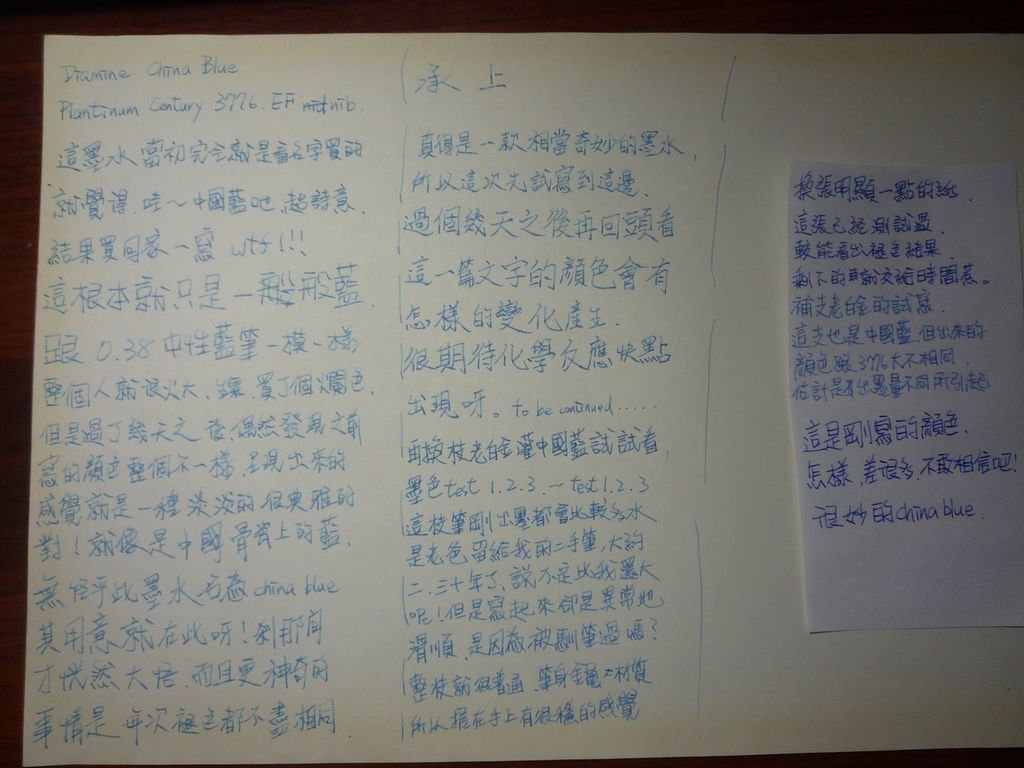 Diamine China Blue
Plantinum Century 3776. EF nib.
這墨水當初完全就是看名字買的
就覺得 哇～中國藍吔 超詩意
結果買回家一寫 wtf!!!
這根本就只是一般般藍
跟 0.38 中性藍筆一模一樣
整個人就很火大. 買了個爛色.
但是過了幾天之後, 偶然發現之前
寫的顏色整個不一樣, 呈現出來的
感覺就是一種淡淡的 很典雅的
對！就像是中國骨瓷上的藍.
無怪乎此墨水名為 china blue
其用意就在此呀！剎那間
才恍然大悟. 而且更神奇的
事情是 每次褪色都不盡相同
承上
真得是一款相當奇妙的墨水,
所以這次先試寫到這邊.
過個幾天之後再回頭看
這一篇文字的顏色會有
怎樣的變化產生.
很期待化學反應快點
出現呀。to be continued......
再換枝老白金灌中國藍試試看,
墨色test 1.2.3.～test 1.2.3
這枝筆剛出墨都會比較多水
是老爸留給我的二手筆, 大約
二、三十年了, 說不定比我還大
呢！但是寫起來卻是異常地
滑順, 是因為被馴筆過嗎？
整枝就很普通. 筆身金屬材質
所以握在手上有很穩的感覺
換張明顯一點的紙.
這張已經測試過.
較能看出褪色結果.
剩下的就交給時間惹。
補支老白金的試寫.
這支也是中國藍. 但出來的
顏色跟3776大不相同.
估計是出墨量不同所引起
這是剛寫的顏色.
怎樣, 差很多, 不敢相信吧!
很妙的china blue.